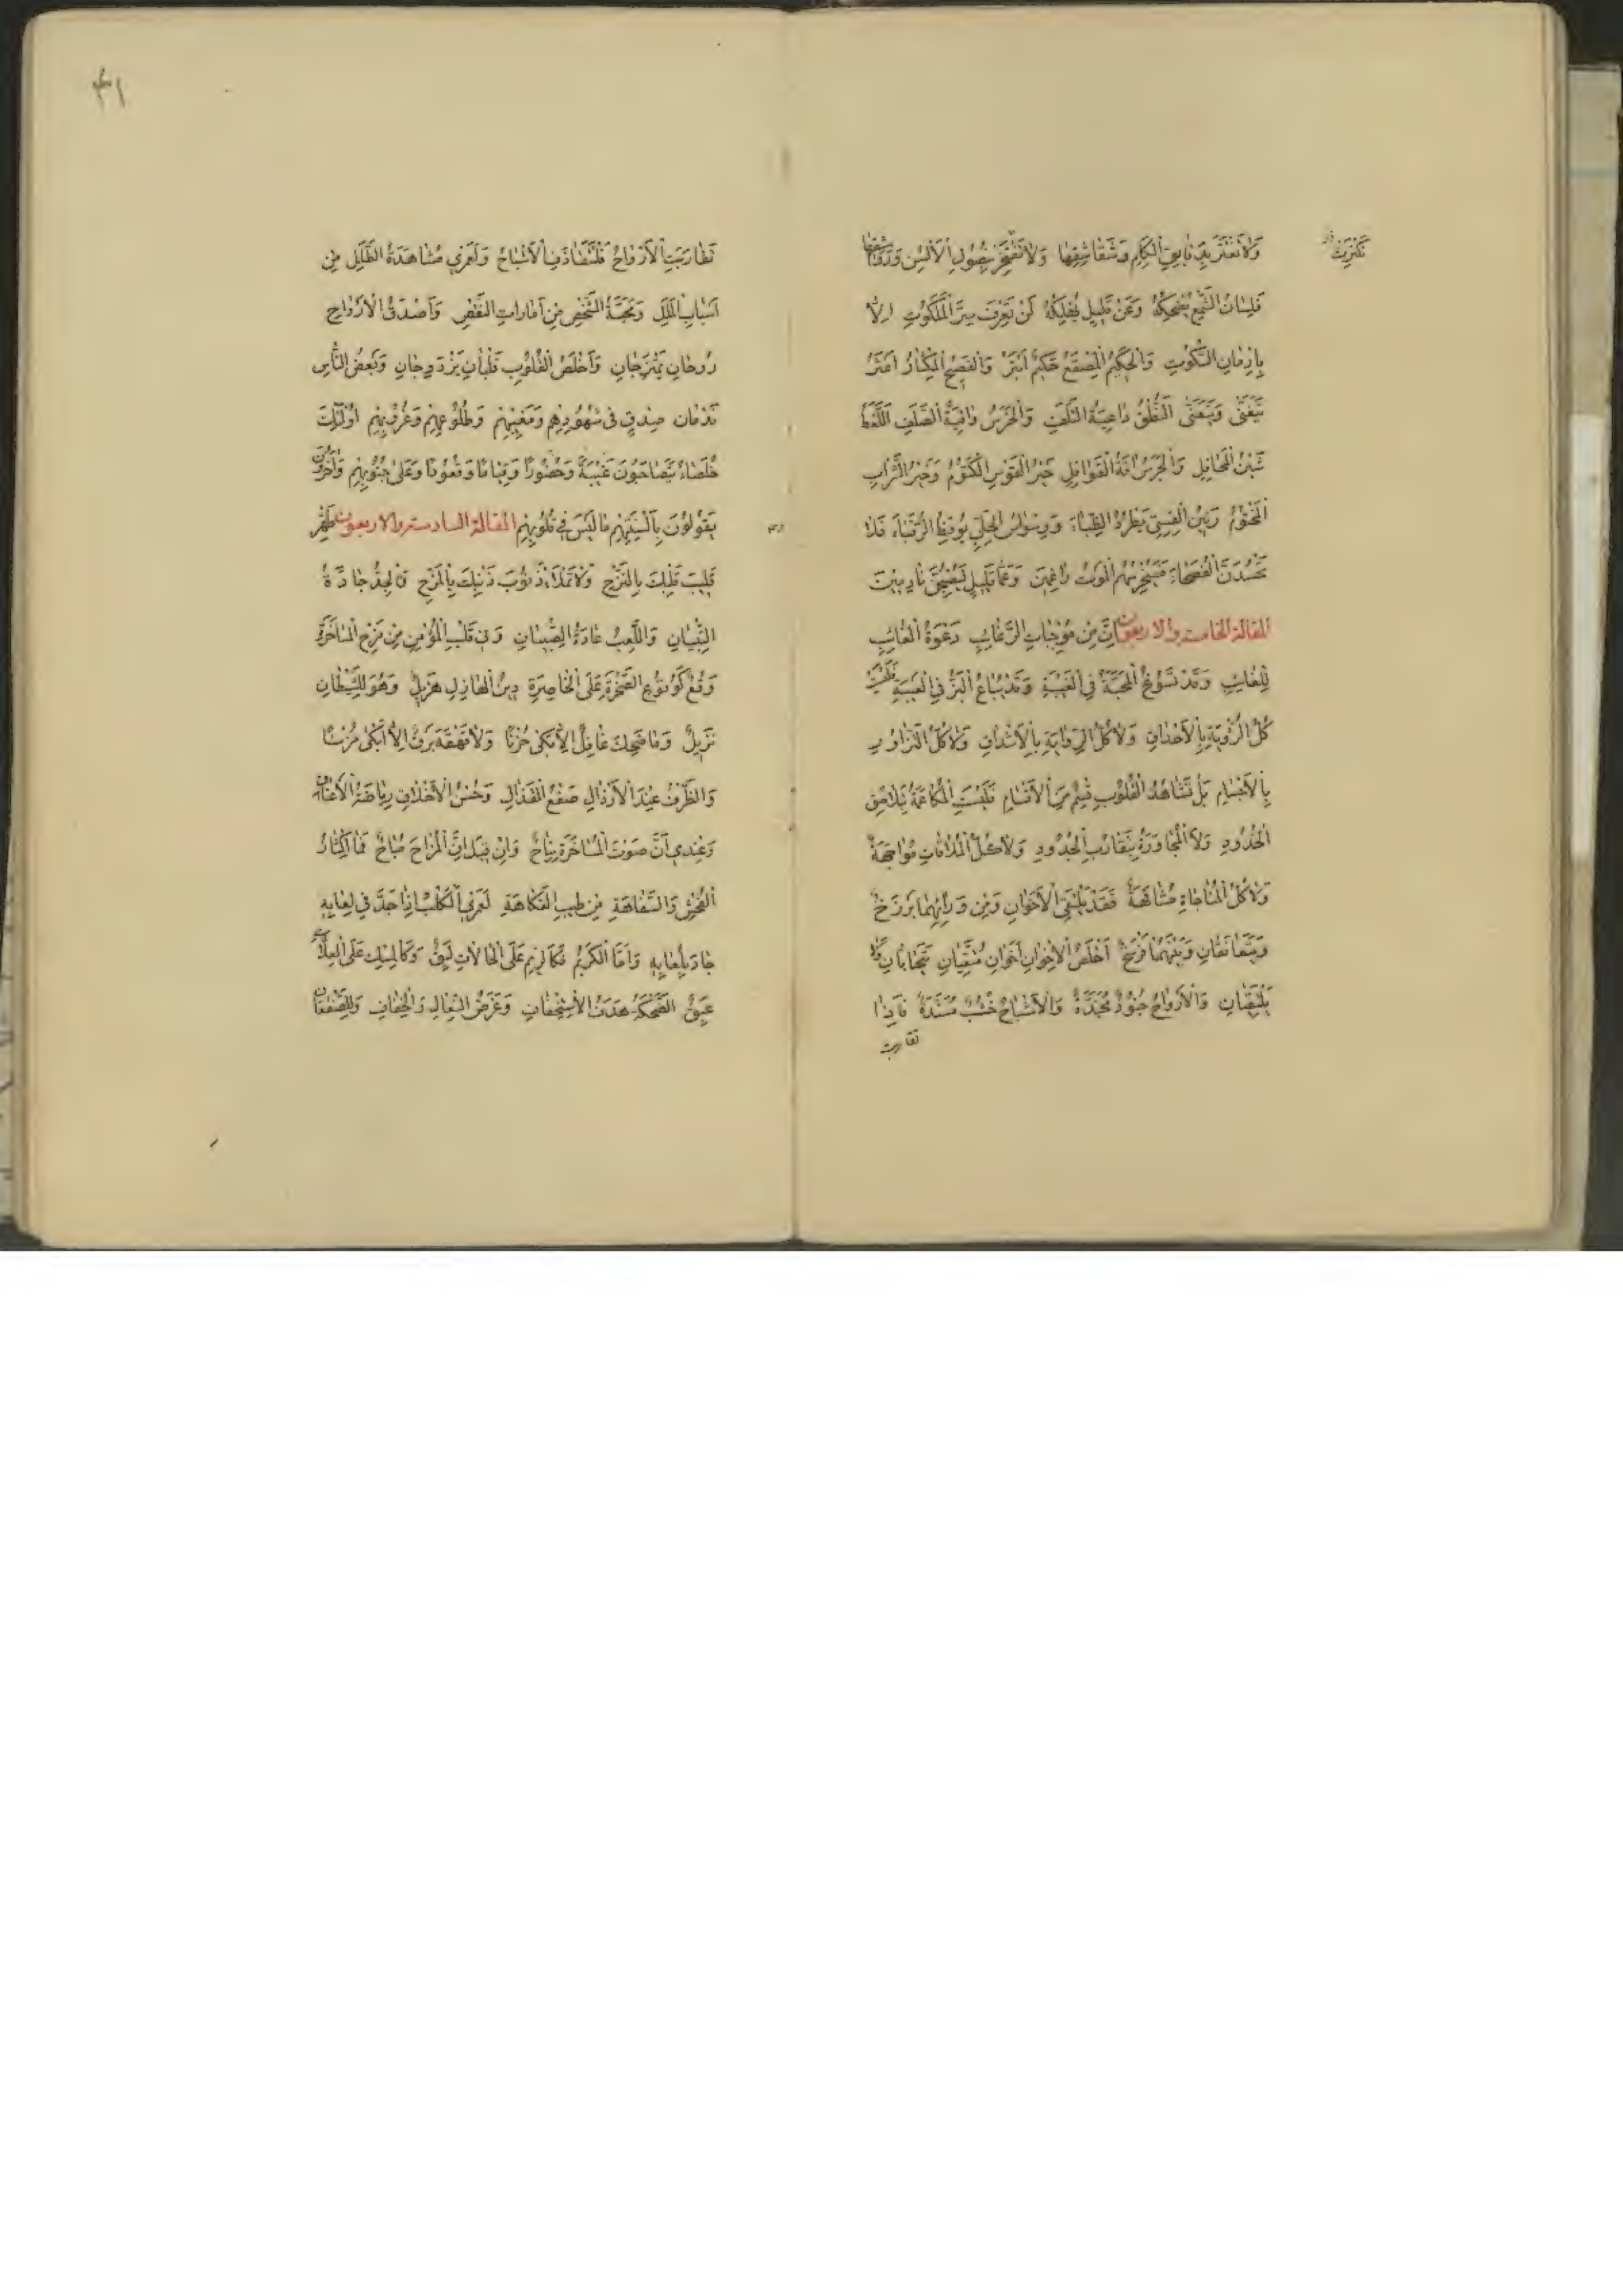 وَلَا تَغْتَرَّ بِيَنَابِيعِ الْكَلِمِ وَشَقَاشِقِهَا وَلَا تَفْتَخِرْ بِنُصُولِ الْأَلْسُنِ وَرَوَاشِقِهَا
فَلِسَانُ الشَّمْعِ يُضْحِكُهُ وَعَنْ قَلِيلٍ يُهْلِكُهُ لَنْ تَعْرِفَ سِرَّ الْمَلَكُوتِ إِلَّا
بِإِدْمَانِ السُّكُوتِ وَالْحَكِيمُ الْمِصْقَعُ حَكِيمٌ أَبْتَرُ وَالْفَصِيحُ الْمِكْثَارُ أَعْثَرُ
النُّطْقُ دَاعِيَةُ التَّلَفِ وَالْخَرَسُ وَاقِيَةُ الصَّلَفِ اللَّغَطُ
شَيْنُ الْمَحَافِلِ وَالْجَرَسُ آفَةُ الْقَوَافِلِ خَيْرُ الْقَوْسِ الْكَتُومُ وَخَيْرُ الشَّرَابِ
الْمَخْتُومُ رَنِينُ الْقِسِيِّ يَطْرُدُ الظِّبَاءَ وَوِسْوَاسُ الْحُلِيِّ يُوقِظُ الرُّقَبَاءَ فَلَا
تَحْسُدَنَّ الْفُصَحَاءَ فَسَيُخْرِسُهُمُ الْمَوْتُ رَاغِمِينَ وَعَمَّا قَلِيلٍ لَيُصْبِحُنَّ نَادِمِينَ
المقالة الخامسة والاربعون إِنَّ مِنْ مُوجِبَاتِ الرَّغَائِبِ دَعْوَةُ الْغَائِبِ
لِلْغَائِبِ وَقَدْ تَسُوغُ الْمَحَبَّةُ فِي الْغَيْبَةِ وَقَدْ يُبَاعُ الْبَزُّ فِي الْعَيْبَةِ فَلَيْسَتْ
كُلُّ الرُّؤْيَةِ بِالْأَحْدَاقِ وَلَا كُلُّ الرِّوَايَةِ بِالْأَشْدَاقِ وَلَا كُلُّ التَّزَاوُرِ
بِالْأَجْسَامِ بَلْ تَشَاهُدُ الْقُلُوبِ قِسْمٌ مِنَ الْأَقْسَامِ فَلَيْسَتِ الْمُكَاعَمَةُ بِتَلَاصُقِ
الْخُدُودِ وَلَا الْمُجَاوَرَةُ بِتَقَارُبِ الْحُدُودِ وَلَا كُلُّ الْمُلَاقَاتِ مُوَاجَهَةً
وَلَا كُلُّ الْمُنَاجَاةِ مُشَافَهَةً فَقَدْ يَلْتَقِي الْأَخَوَانِ وَمِنْ وَرَائِهِمَا بَرْزَخٌ
وَيَتَعَانَقَانِ وَبَيْنَهُمَا فَرْسَخٌ أَخْلَصُ الْإِخْوَانِ أَخَوَانِ مُتَّقِيَانِ يَتَحَابَّانِ وَلَا
يَلْتَقِيَانِ وَالْأَرْوَاحُ جُنُودٌ مُجَنَّدَةٌ وَالْأَشْبَاحُ خُشُبٌ مُسَنَّدَةٌ فَإِذَا
تقاربت
٤١
تَقَارَبَتِ الْأَرْوَاحُ فَلْتَتَقَاذَفِ الْأَشْبَاحُ وَلَعَمْرِي مُشَاهَدَةُ الظَّلَلِ مِنْ
أَسْبَابِ الْمَلَلِ وَمَحَبَّةُ الشَّخْصِ مِنْ أَمَارَاتِ النَّقْصِ وَأَصْدَقُ الْأَزْوَاجِ
رُوحَانِ يَمْتَزِجَانِ وَأَخْلَصُ الْقُلُوبِ قَلْبَانِ يَزْدَوِجَانِ وَبَعْضُ النَّاسِ
نَدْمَانُ صِدْقٍ فِي شُهُودِهِمْ وَمَغِيبِهِمْ وَطُلُوعِهِمْ وَغُرُوبِهِمْ أُولَئِكَ
خُلَصَاءُ يَتَصَاحَبُونَ غَيْبَةً وَحُضُورًا وَقِيَامًا وَقُعُودًا وَعَلَى جُنُوبِهِمْ وَآخَرُونَ
يَقُولُونَ بِأَلْسِنَتِهِمْ مَا لَيْسَ فِي قُلُوبِهِمْ المقالة السادسة والاربعون طَهِّرْ
قَلِيبَ قَلْبِكَ بِالنَّزْحِ وَلَا تَمْلَأْ ذَنُوبَ ذَنْبِكَ بِالْمَزْحِ فَالْجِدُّ جَادَّةُ
الْفِتْيَانِ وَاللَّعِبُ عَادَةُ الصِّبْيَانِ وَفِي قَلْبِ الْمُؤْمِنِ مِنْ مَزْحِ الْمَسَاخِرَةِ
وَقْعٌ كَوُقُوعِ الصَّخْرَةِ عَلَى الْخَاصِرَةِ دِينُ الْهَازِلِ هَزِيلٌ وَهُوَ لِلشَّيْطَانِ
نَزِيلٌ وَمَا ضَحِكَ غَافِلٌ إِلَّا بَكَى حُزْنًا وَلَا قَهْقَهَ بَرْقٌ إِلَّا أَبْكَى مُزْنًا
وَالظَّرْفُ عِنْدَ الْأَرْذَالِ صَفْعُ الْقَذَالِ وَحُسْنُ الْأَخْلَاقِ رِيَاضَةُ الْأَعْنَاقِ
وَعِنْدِي أَنَّ صَوْتَ الْمَسَاخِرَةِ نِبَاحٌ وَإِنْ قِيلَ إِنَّ الْمُزَاحَ مُبَاحٌ فَمَا إِكْثَارُ
الْفُحْشِ وَالسَّفَاهَةِ مِنْ طِيبِ الْفُكَاهَةِ لَعَمْرِي الْكَلْبُ إِذَا جَدَّ فِي لِعَابِهِ
جَادَ بِلُعَابِهِ وَأَمَّا الْكَرِيمُ فَكَالرِّيمِ عَلَى الْحَالَاتِ لَبِقٌ وَكَالْمِسْكِ عَلَى الْعِلَّاتِ
عَبِقٌ الضُّحَكَةُ هَدَفُ الْاِسْتِخْفَافِ وَغَرَضُ النِّعَالِ وَالْخِفَافِ وَلِلصَّفْعَانِ